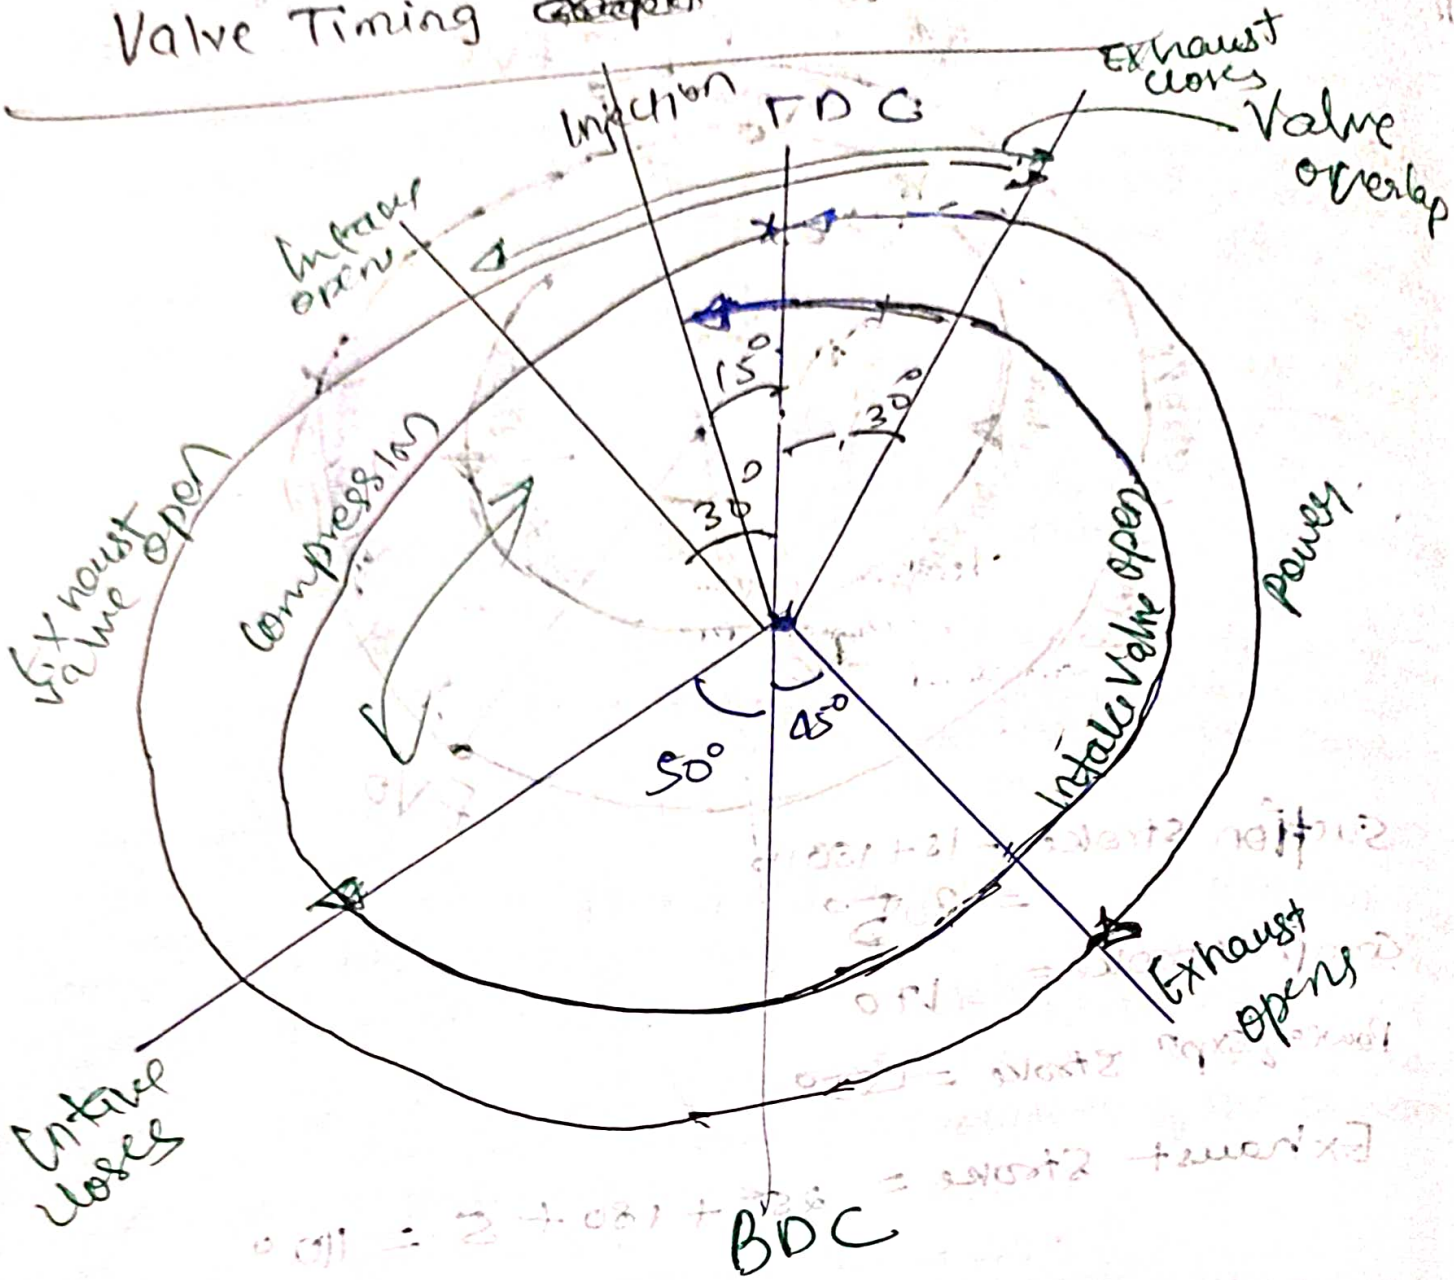 Valve Timing
Injection
TDC
Exhaust
closes
Valve
overlap
opens
15°
30°
30°
Exhaust
valve open
Compression
Intake Valve open
Power
50°
45°
Exhaust
opens
closes
BDC